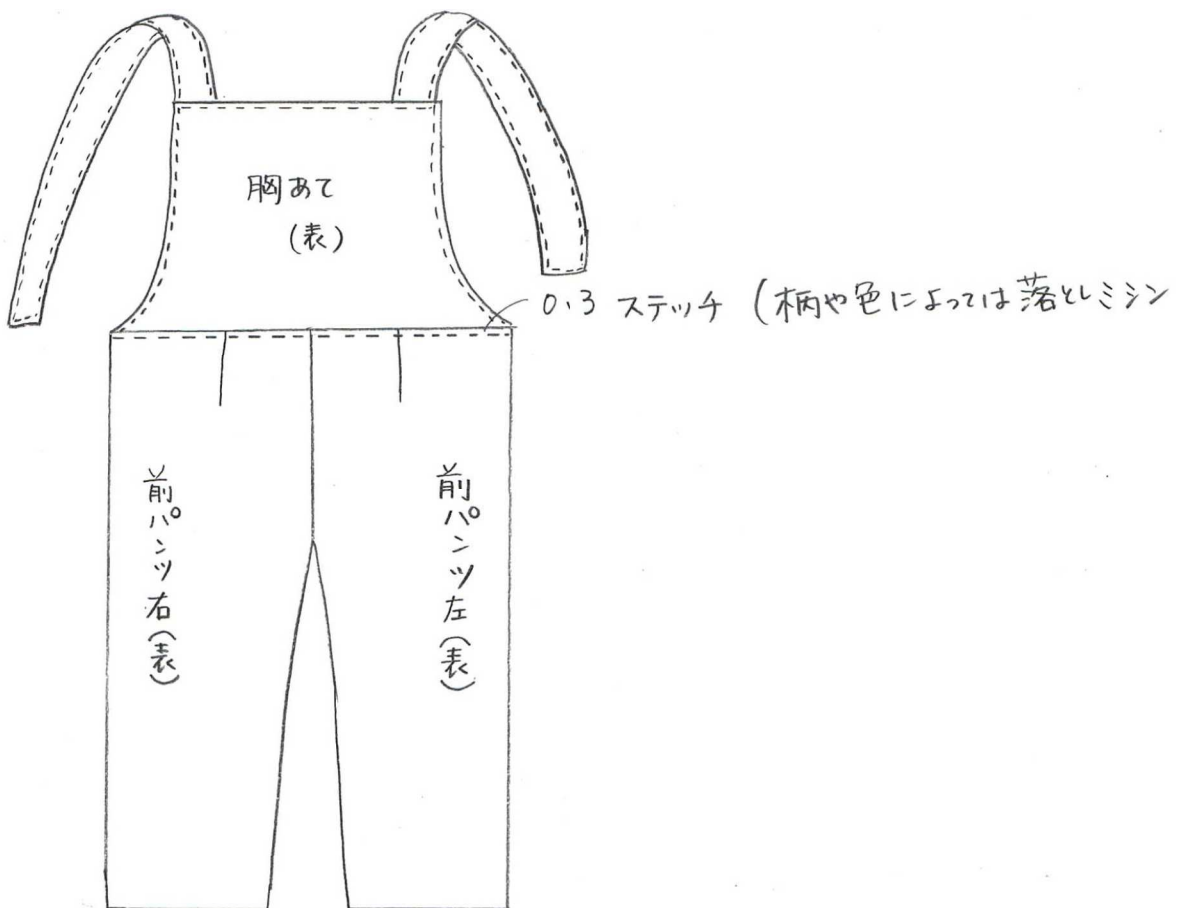 胸あて
(表)
0.3 ステッチ (柄や色によっては落としミシン
前パンツ右(表)
前パンツ左(表)